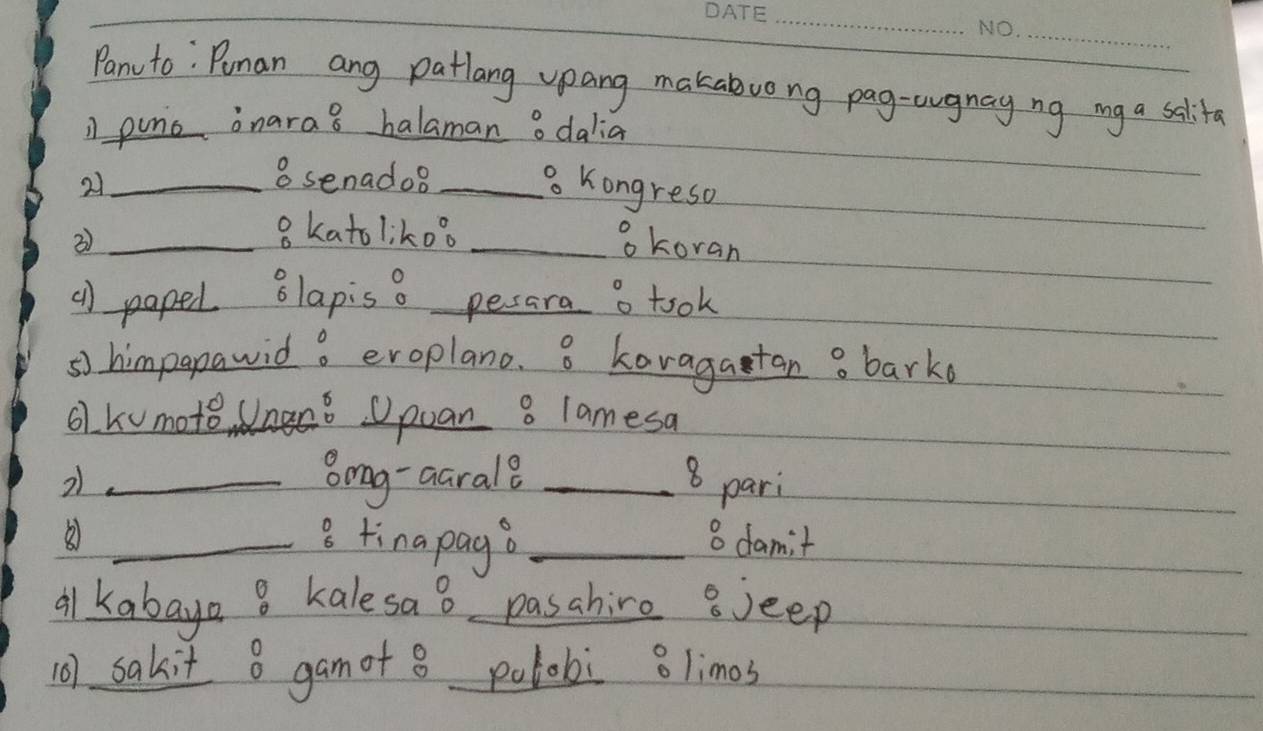 DATE NO.
Panuto: Punan ang patlang upang makabuong pag-uugnay ng mga salita
1) puno : nara : halaman : dalia
2) ______ : senado : ______ : Kongreso
3) ______ : katoliko : ______ : koran
4) papel : lapis : pesara : tsok
5) himpapawid : eroplano. : karagatan : barko
6) kumot : Unan : Upuan : lamesa
7) ______ : mag-aaral : ______ : pari
8) ______ : tinapay : ______ : damit
9) kabayo : kalesa : pasahiro : jeep
10) sakit : gamot : pulobi : limos